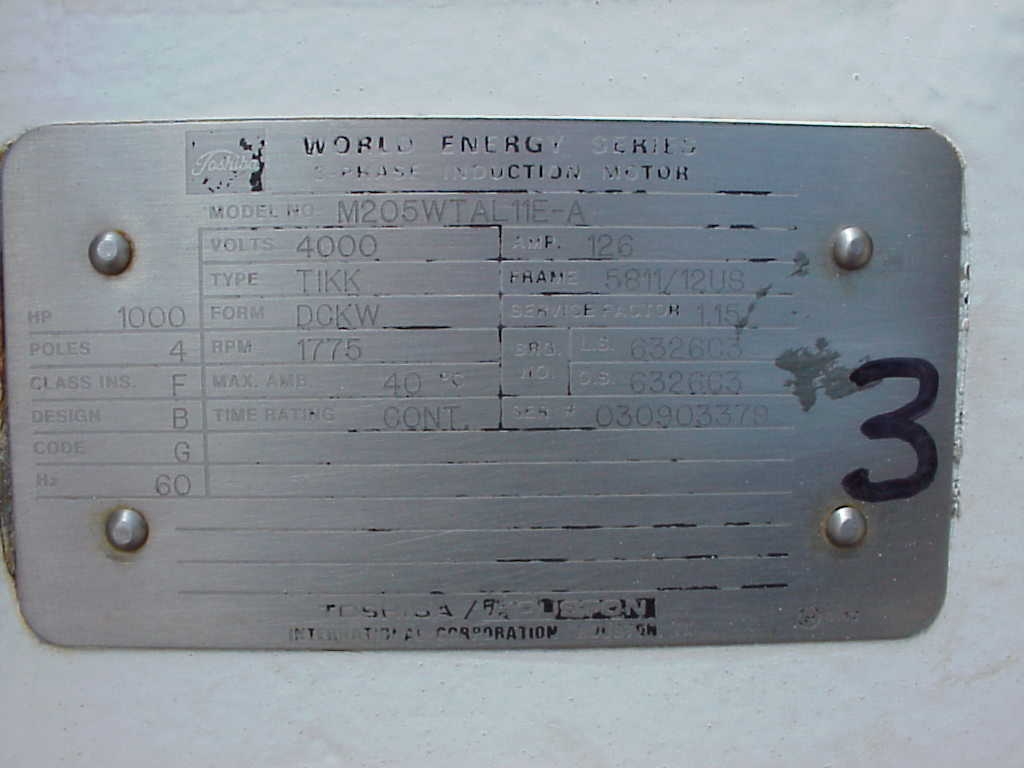 Toshiba
WORLD ENERGY SERIES
3-PHASE INDUCTION MOTOR
MODEL NO. M205WTAL11E-A
VOLTS 4000 AMP. 126
TYPE TIKK FRAME 5811/12US
HP 1000 FORM DCKW SERVICE FACTOR 1.15
POLES 4 RPM 1775 BRG. NO. L.S. 6326C3
CLASS INS. F MAX. AMB. 40 °C O.S. 6326C3
DESIGN B TIME RATING CONT. SER. # 030903379
CODE G
Hz 60
3
TOSHIBA / HOUSTON
INTERNATIONAL CORPORATION